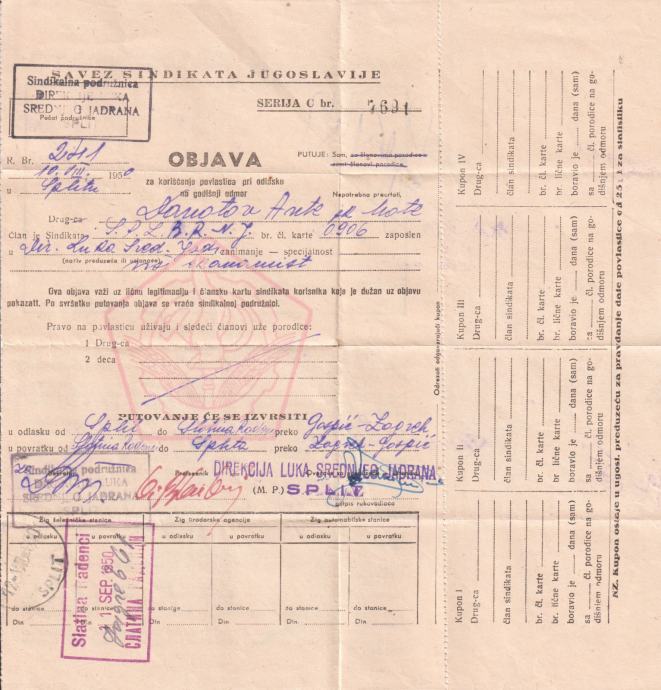 SAVEZ SINDIKATA JUGOSLAVIJE
Sindikalna podružnica
DIREKCIJE LUKA
SREDNJEG JADRANA
SPLIT
Pečat podružnice
SERIJA C br. 7691
R. Br. 2011
10. VIII. 1950
u Splitu
OBJAVA
za korišćenje povlastica pri odlasku
na godišnji odmor
PUTUJE: Sam, sa članovima porodice
sami članovi porodice.
Nepotrebno precrtati,
Drug-ca Ante pk Mate
Član je Sindikata S.P.L.B.R.N.J. br. čl. karte 0906 zaposlen
u Dir. Luka Sred. Jadr. zanimanje — specijalnost
(naziv preduzeća ili ustanove)
Ova objava važi uz ličnu legitimaciju i člansku kartu sindikata korisnika koje je dužan uz objavu
pokazati. Po svršetku putovanja objava se vraća sindikalnoj podružnici.
Pravo na povlasticu uživaju i sledeći članovi uže porodice:
1 Drug-ca
2 deca
PUTOVANJE ĆE SE IZVRŠITI
u odlasku od Split do Slatina Radenci preko Gospić-Zagreb
u povratku od Slatina Radenci do Splita preko Zagreb-Gospić
Sindikalna podružnica
DIREKCIJE LUKA
SREDNJEG JADRANA
SPLIT
DIREKCIJA LUKA SREDNJEG JADRANA
(M. P.) SPLIT
potpis rukovodioca
Žig železničke stanice
Žig brodarske agencije
Žig automobilske stanice
u odlasku
u povratku
u odlasku
u povratku
u odlasku
u povratku
SPLIT
Slatina Radenci
1 SEP 1950
СЛАТИНА
do stanice
do stanice
do stanice
do stanice
do stanice
do stanice
Din
Din
Din
Din
Din
Din
Odrezati odgovarajući kupon
Kupon IV
Drug-ca
član sindikata
br. čl. karte
br. lične karte
boravio je dana (sam)
sa čl. porodice na go-
dišnjem odmoru
Kupon III
Drug-ca
član sindikata
br. čl. karte
br. lične karte
boravio je dana (sam)
sa čl. porodice na go-
dišnjem odmoru
Kupon II
Drug-ca
član sindikata
br. čl. karte
br. lične karte
boravio je dana (sam)
sa čl. porodice na go-
dišnjem odmoru
Kupon I
Drug-ca
član sindikata
br. čl. karte
br. lične karte
boravio je dana (sam)
sa čl. porodice na go-
dišnjem odmoru
NZ. Kupon ostaje u ugost. preduzeću za pravdanje date povlastice od 25% i za statistiku